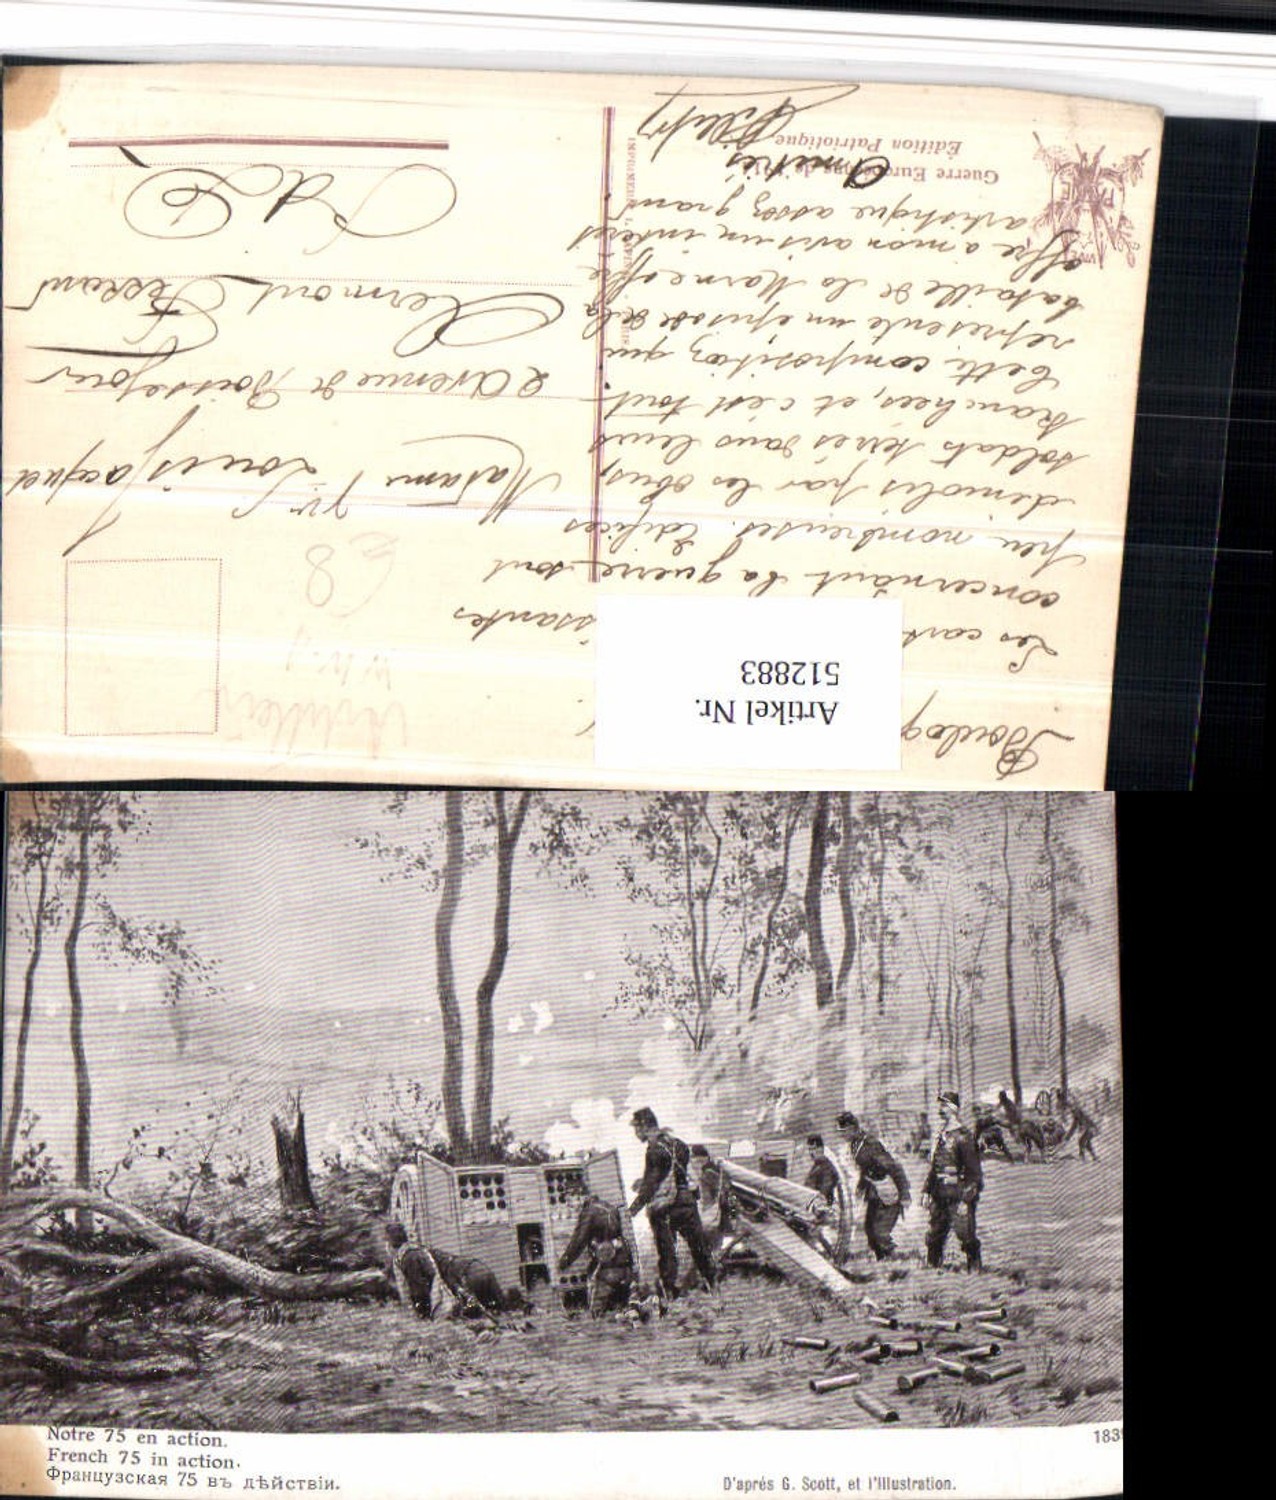 Boulog
Les cart ssantes
concernant la guerre sont
peu nombreuses. Edifices
démolis par les obus,
soldats terrés dans leurs
tranchées, et c'est tout.
Cette composition qui
représente un épisode de la
bataille de la Marne offre
offre a mon avis un intérêt
artistique assez grand
Amitiés
Guerre Européenne de 1914
Édition Patriotique
Artikel Nr.
512883
Madame Vve Louis Jacquet
2 Avenue de
Clermont Ferrand
P de D
€8
VIVE
Notre 75 en action.
French 75 in action.
Французская 75 въ дѣйствіи.
D'aprés G. Scott, et l'Illustration.
183